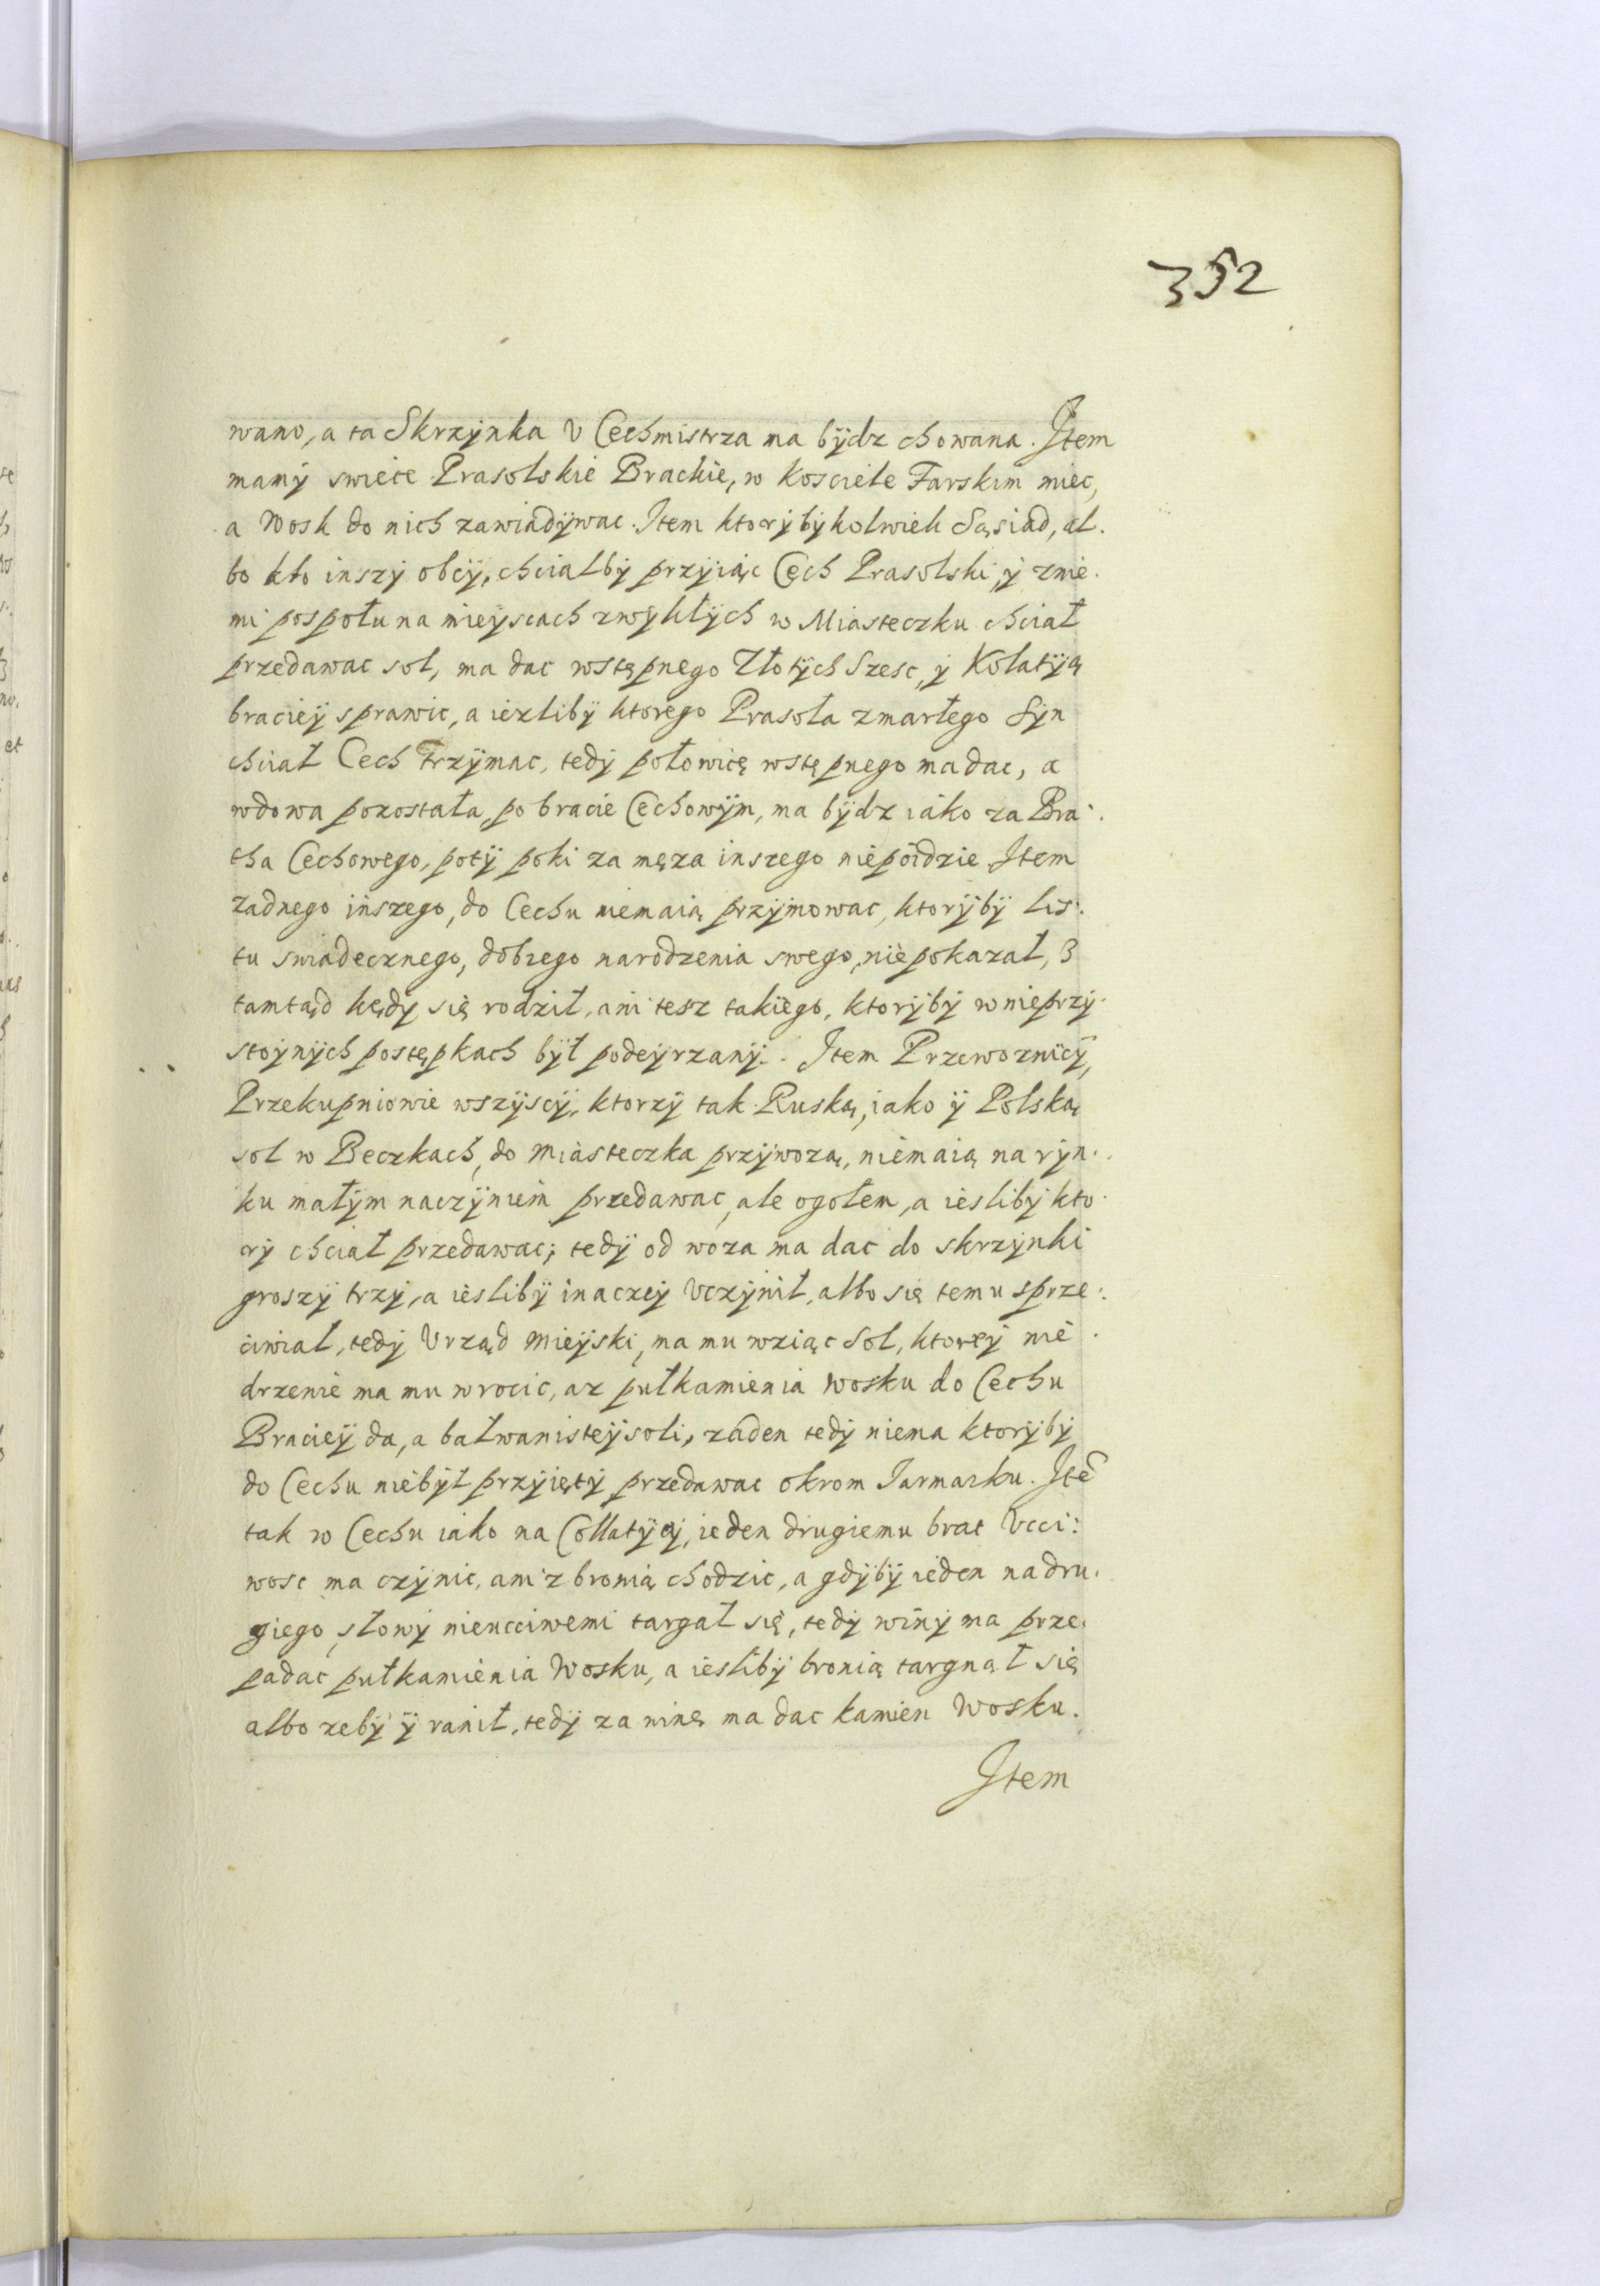 352
wano, a ta Skrzynka V Cechmistrza ma bÿdz chowana. Item
mamÿ swiece Prasolskie Brackie, w Kosciele Farskim miec,
a Wosk do nich zawiadÿwac. Item ktorÿbÿkolwiek Sąsiad, al.
bo kto inszÿ obcÿ, chciałbÿ przÿiąc Cech Prasolski, ÿ znie.
mi pospołu na mieÿscach zwÿkłÿch w Miasteczku chciał
przedawac sol, ma dac wstępnego Złotÿch Szesc, ÿ Kolatÿą
bracieÿ sprawic, a iezlibÿ ktorego Prasoła zmarłego Sÿn
chciał Cech Trzÿmac, tedÿ połowicę wstępnego ma dac, a
wdowa pozostała, po bracie Cechowÿm, ma bÿdz iako za Bra.
tha Cechowego, potÿ poki za męza inszego niepoidzie. Item
zadnego inszego, do Cechu niemaią przÿjmowac, ktorÿbÿ lis.
tu swiadecznego, dobrego narodzenia swego, niepokazał, З
tamtąd kędÿ się rodził, ani tesz takiego, ktorÿbÿ w nieprzÿ.
stoÿnÿch postępkach bÿł podeÿrzanÿ. Item Przewoznicÿ,
Przekupniowie wszÿscÿ, ktorzÿ tak Ruską, iako ÿ Polską
sol w Beczkach, do Miasteczka przÿwozą, niemaią na rÿn.
ku małÿm naczÿniem przedawac, ale ogołem, a ieslibÿ kto.
rÿ chciał przedawac; tedÿ od woza ma dac do skrzÿnki
groszÿ trzÿ, a ieslibÿ inaczeÿ Vczÿnił, albo się temu sprze.
ciwiał, tedÿ Vrząd Mieÿski, ma mu wziąc Sol, ktoreÿ nie
drzenie ma mu wrocic, az pułkamienia Wosku do Cechu
Bracieÿ da, a bałwanisteÿ soli, zaden tedÿ niema ktorÿbÿ
do Cechu niebÿł przÿiętÿ przedawac okrom Jarmarku. Itē
tak w Cechu iako na Collatÿeÿ, ieden drugiemu brat Vcci:
wosc ma czÿnic, ani z bronią chodzic, a gdÿbÿ ieden na dru.
giego, słowÿ nieucciwemi targał się, tedÿ winÿ ma prze.
padac pułkamienia Wosku, a ieslibÿ bronią targnął się
albo zebÿ ÿ ranił, tedÿ za winę ma dac kamien Wosku.
Item